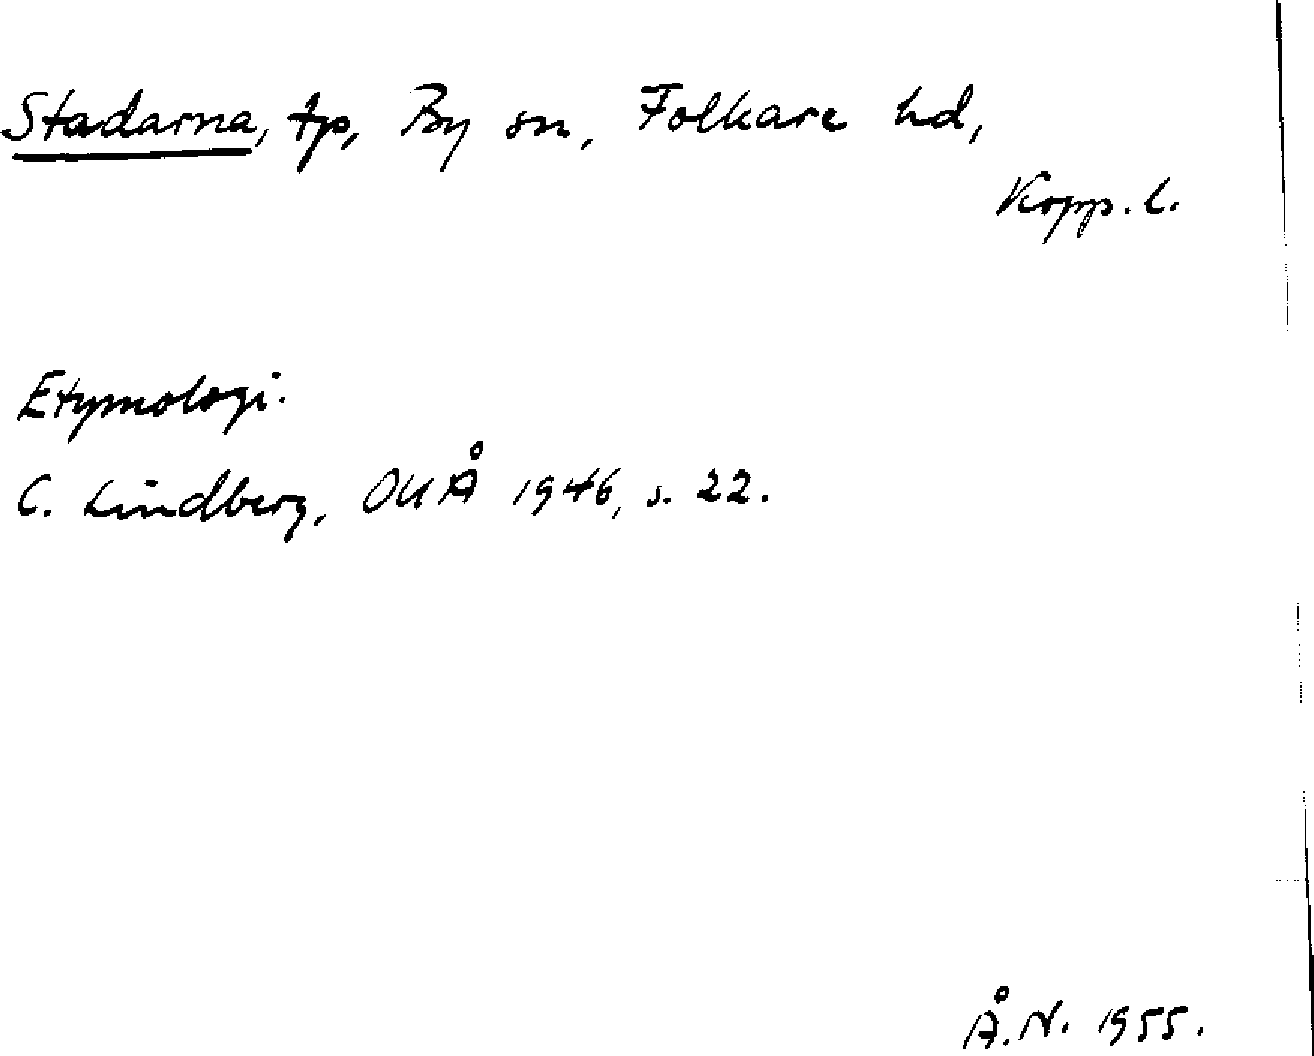 Stadarna, tp, By sn, Folkare hd,
Kopp. l.
Etymologi.
C. Lindberg, OUÅ 1946, s. 22.
Å.N. 1955.